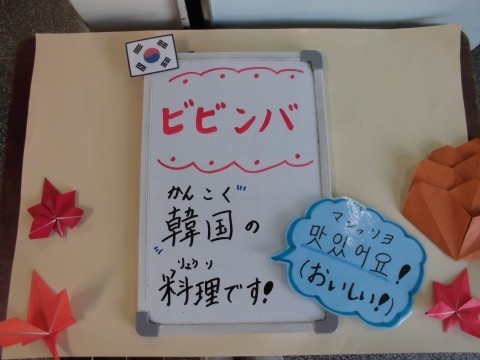 ビビンバ
かんこく
韓国の
りょうり
料理です!
マシッソヨ
맛있어요!
(おいしい!)